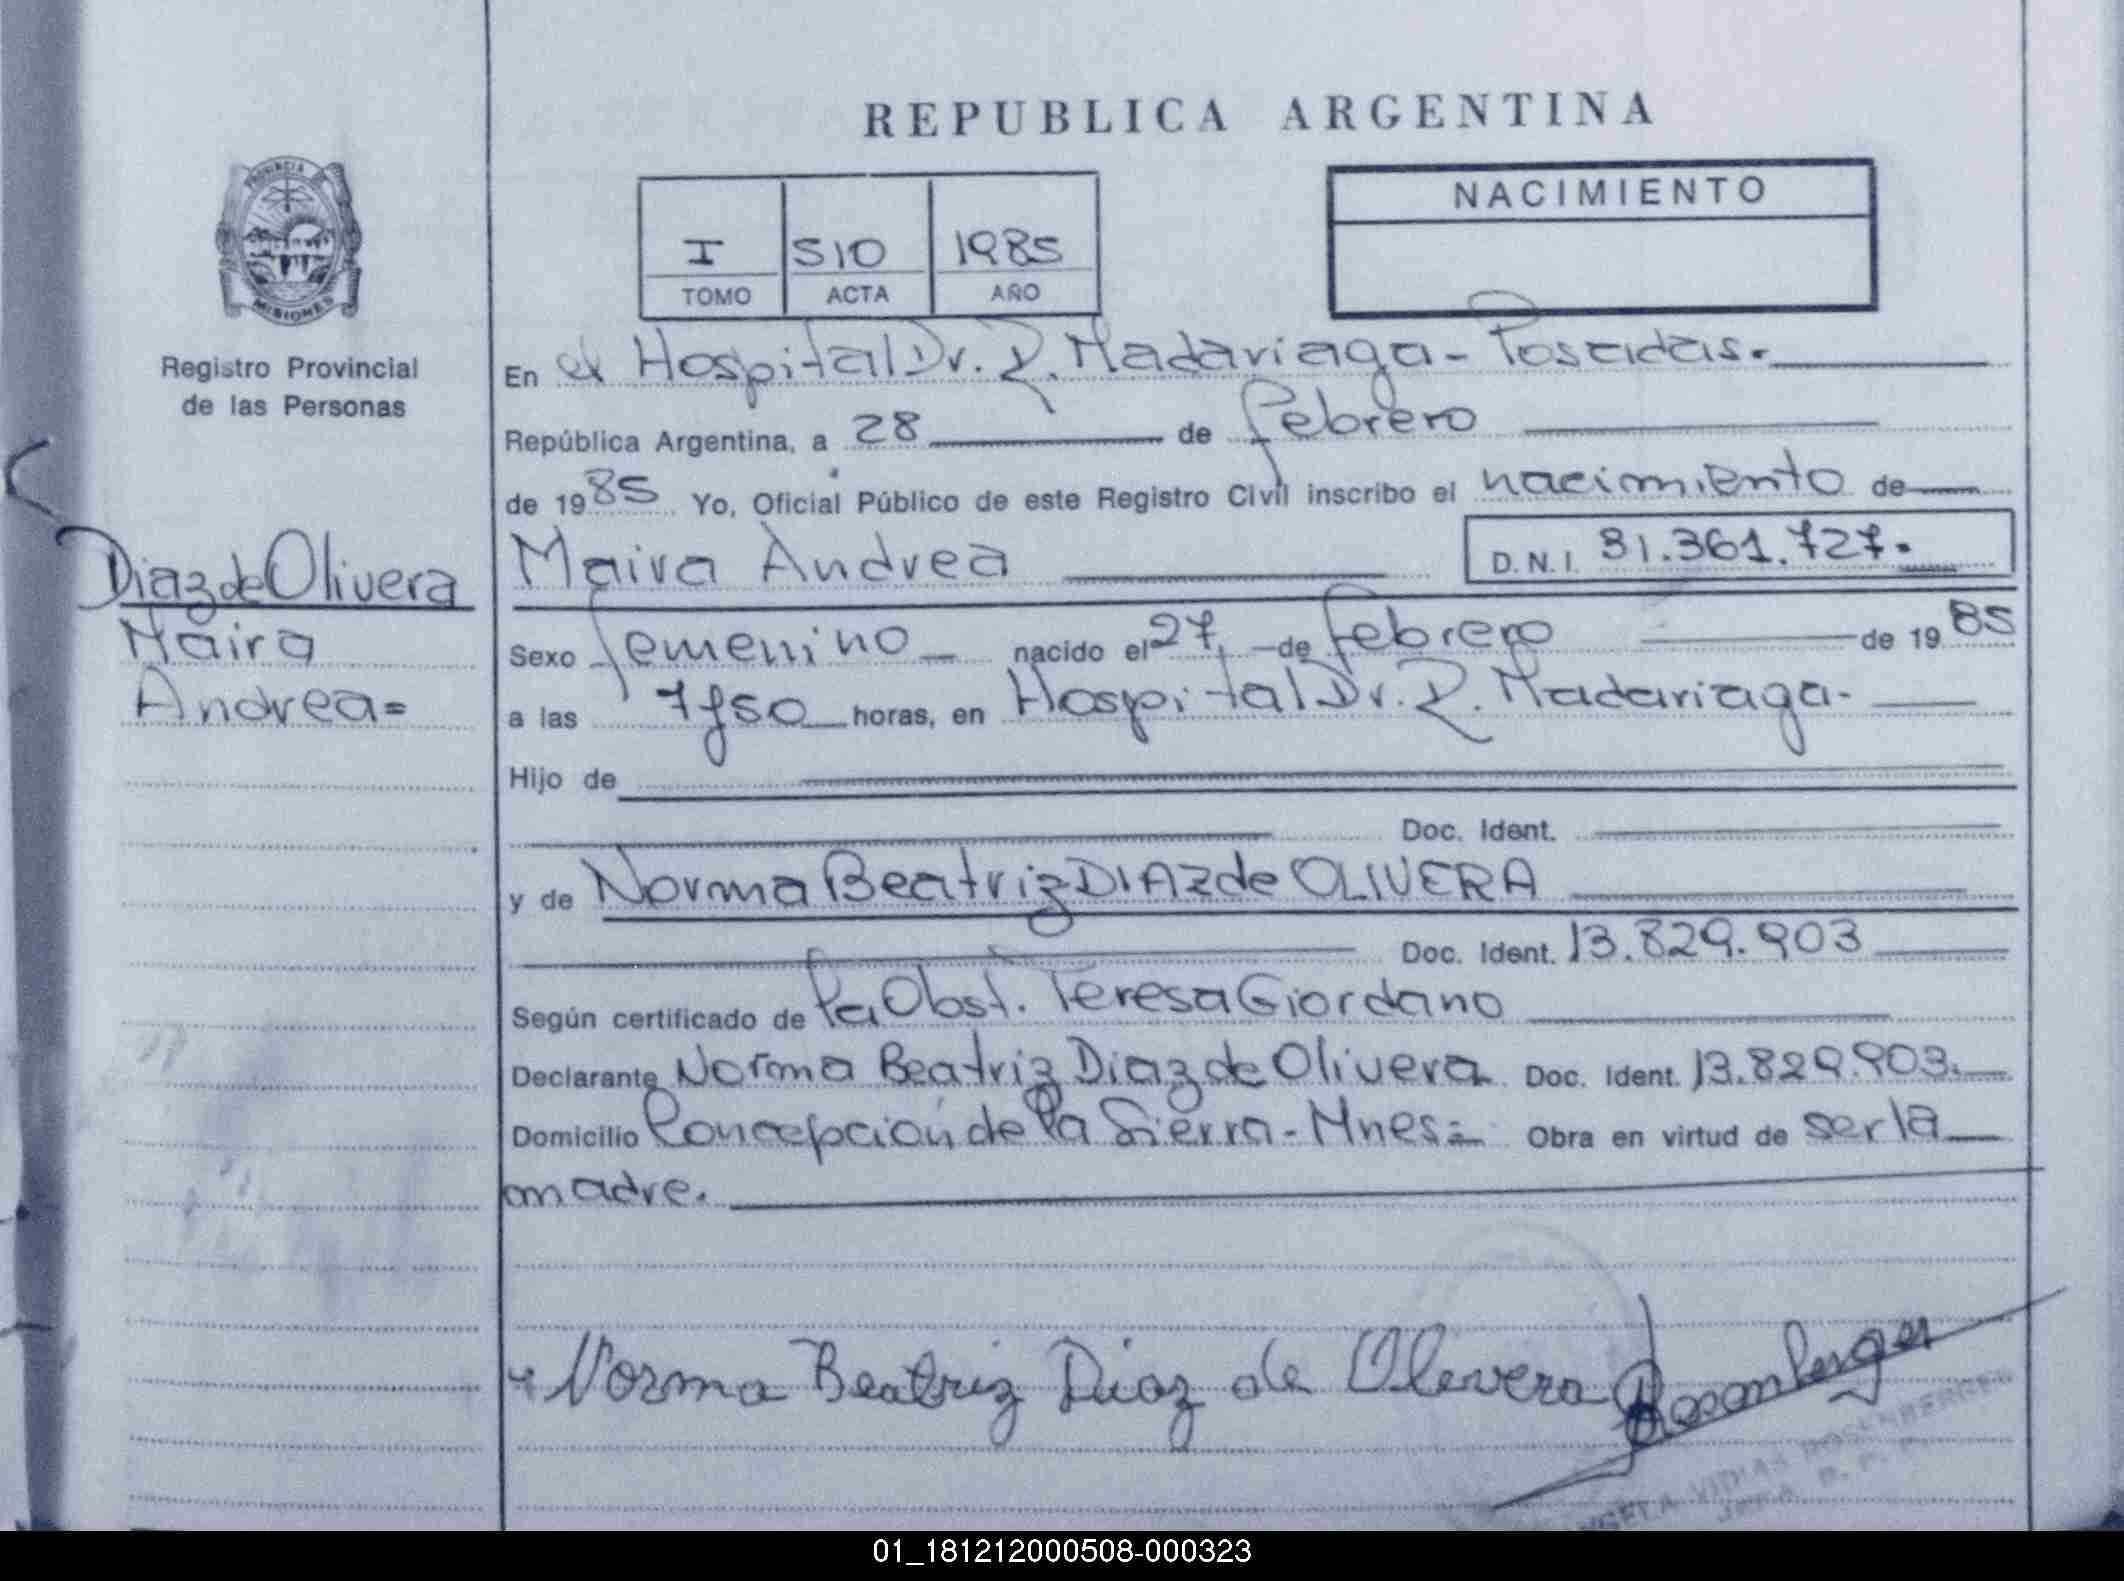 REPUBLICA ARGENTINA
PROVINCIA
MISIONES
Registro Provincial
de las Personas
I 510 1985
TOMO ACTA AÑO
NACIMIENTO
En el Hospital Dr. R. Madariaga - Posadas.
República Argentina, a 28 de febrero
de 1985 Yo, Oficial Público de este Registro Civil inscribo el nacimiento de
Diaz de Olivera
Maira
Andrea=
Maira Andrea D.N.I. 31.361.727.
Sexo femenino nacido el 27 de febrero de 1985
a las 7y50 horas, en Hospital Dr. R. Madariaga-
Hijo de
Doc. Ident.
y de Norma Beatriz DIAZ de OLIVERA
Doc. Ident. 13.829.903
Según certificado de la Obst. Teresa Giordano
Declarante Norma Beatriz Diaz de Olivera Doc. Ident. 13.829.903.
Domicilio Concepción de la Sierra - Mnes= Obra en virtud de ser la
madre.
Norma Beatriz Diaz de Olevera Rosemberger
ROSENBERGER
01_181212000508-000323